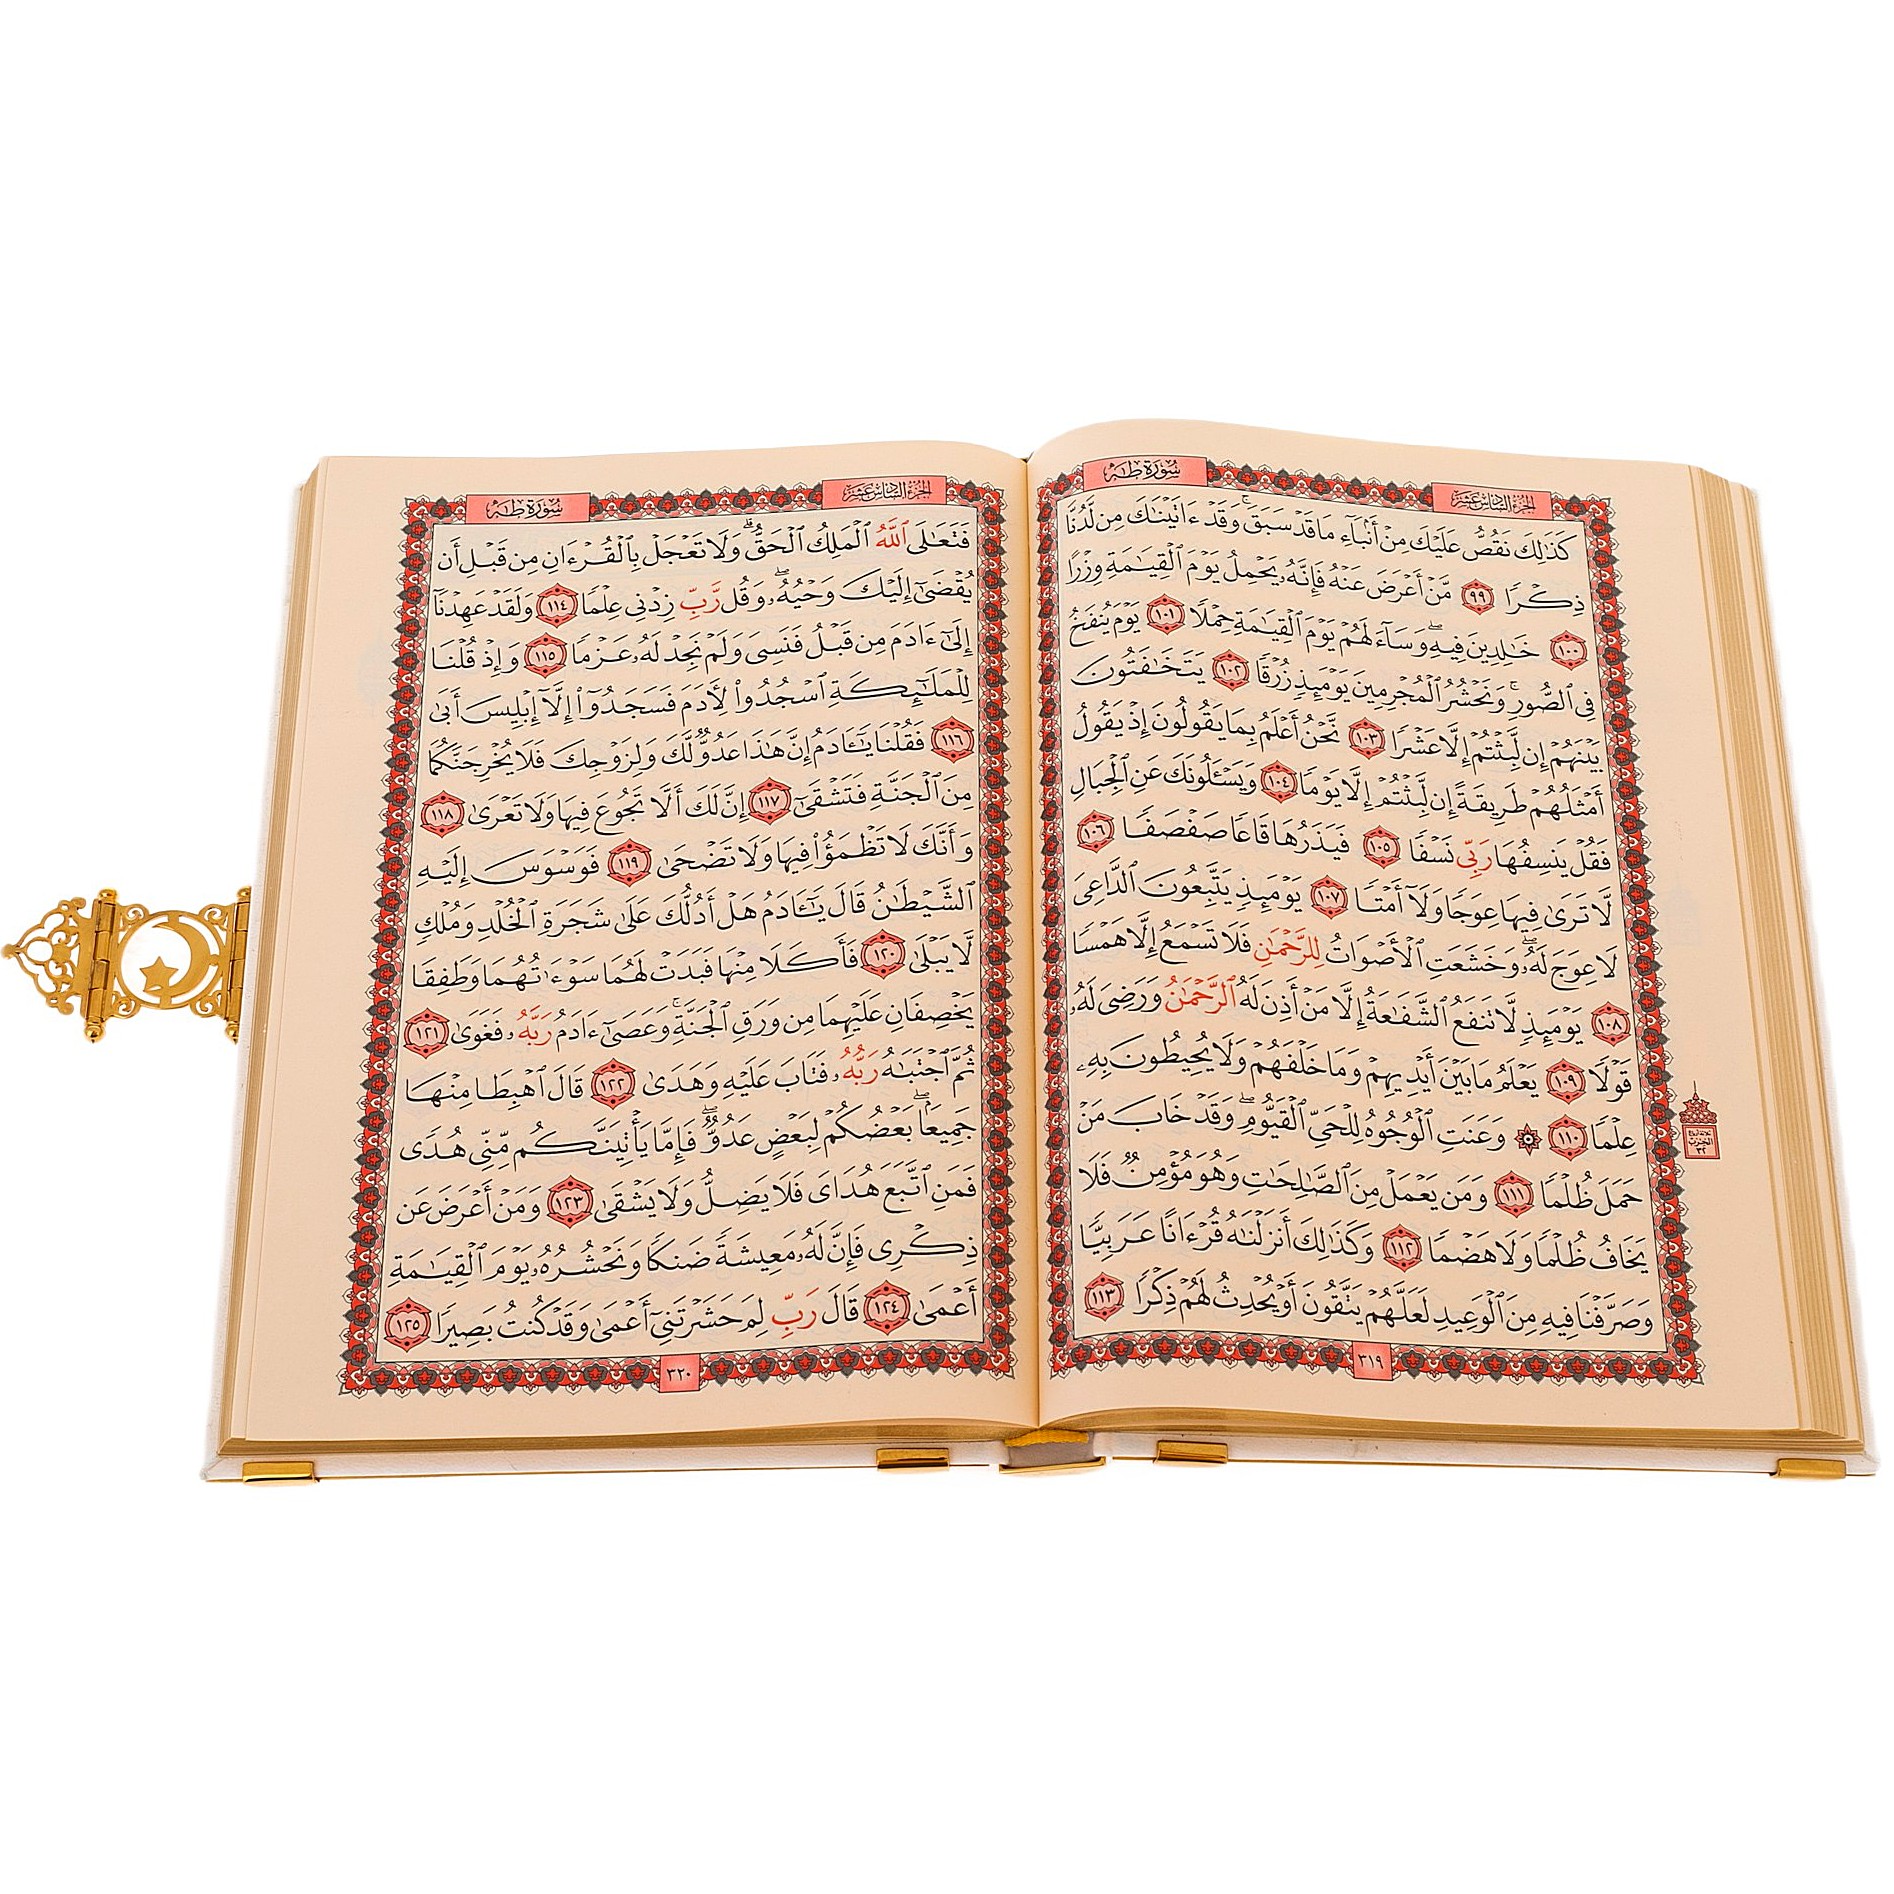 سُورَةُ طه
الجزء السادس عشر
كَذَٰلِكَ نَقُصُّ عَلَيْكَ مِنْ أَنۢبَآءِ مَا قَدْ سَبَقَ ۚ وَقَدْ ءَاتَيْنَٰكَ مِن لَّدُنَّا
ذِكْرًا ٩٩ مَّنْ أَعْرَضَ عَنْهُ فَإِنَّهُۥ يَحْمِلُ يَوْمَ ٱلْقِيَٰمَةِ وِزْرًا
١٠٠ خَٰلِدِينَ فِيهِ ۖ وَسَآءَ لَهُمْ يَوْمَ ٱلْقِيَٰمَةِ حِمْلًا ١٠١ يَوْمَ يُنفَخُ
فِى ٱلصُّورِ ۚ وَنَحْشُرُ ٱلْمُجْرِمِينَ يَوْمَئِذٍ زُرْقًا ١٠٢ يَتَخَٰفَتُونَ
بَيْنَهُمْ إِن لَّبِثْتُمْ إِلَّا عَشْرًا ١٠٣ نَّحْنُ أَعْلَمُ بِمَا يَقُولُونَ إِذْ يَقُولُ
أَمْثَلُهُمْ طَرِيقَةً إِن لَّبِثْتُمْ إِلَّا يَوْمًا ١٠٤ وَيَسْـَٔلُونَكَ عَنِ ٱلْجِبَالِ
فَقُلْ يَنسِفُهَا رَبِّى نَسْفًا ١٠٥ فَيَذَرُهَا قَاعًا صَفْصَفًا ١٠٦
لَّا تَرَىٰ فِيهَا عِوَجًا وَلَآ أَمْتًا ١٠٧ يَوْمَئِذٍ يَتَّبِعُونَ ٱلدَّاعِىَ
لَا عِوَجَ لَهُۥ ۖ وَخَشَعَتِ ٱلْأَصْوَاتُ لِلرَّحْمَٰنِ فَلَا تَسْمَعُ إِلَّا هَمْسًا
١٠٨ يَوْمَئِذٍ لَّا تَنفَعُ ٱلشَّفَٰعَةُ إِلَّا مَنْ أَذِنَ لَهُ ٱلرَّحْمَٰنُ وَرَضِىَ لَهُۥ
قَوْلًا ١٠٩ يَعْلَمُ مَا بَيْنَ أَيْدِيهِمْ وَمَا خَلْفَهُمْ وَلَا يُحِيطُونَ بِهِۦ
عِلْمًا ١١٠ ۞ وَعَنَتِ ٱلْوُجُوهُ لِلْحَىِّ ٱلْقَيُّومِ ۖ وَقَدْ خَابَ مَنْ
حَمَلَ ظُلْمًا ١١١ وَمَن يَعْمَلْ مِنَ ٱلصَّٰلِحَٰتِ وَهُوَ مُؤْمِنٌ فَلَا
يَخَافُ ظُلْمًا وَلَا هَضْمًا ١١٢ وَكَذَٰلِكَ أَنزَلْنَٰهُ قُرْءَانًا عَرَبِيًّا
وَصَرَّفْنَا فِيهِ مِنَ ٱلْوَعِيدِ لَعَلَّهُمْ يَتَّقُونَ أَوْ يُحْدِثُ لَهُمْ ذِكْرًا ١١٣
٣١٩
الحزب
٣٢
سُورَةُ طه
الجزء السادس عشر
فَتَعَٰلَى ٱللَّهُ ٱلْمَلِكُ ٱلْحَقُّ ۗ وَلَا تَعْجَلْ بِٱلْقُرْءَانِ مِن قَبْلِ أَن
يُقْضَىٰٓ إِلَيْكَ وَحْيُهُۥ ۖ وَقُل رَّبِّ زِدْنِى عِلْمًا ١١٤ وَلَقَدْ عَهِدْنَآ
إِلَىٰٓ ءَادَمَ مِن قَبْلُ فَنَسِىَ وَلَمْ نَجِدْ لَهُۥ عَزْمًا ١١٥ وَإِذْ قُلْنَا
لِلْمَلَٰٓئِكَةِ ٱسْجُدُوا۟ لِـَٔادَمَ فَسَجَدُوٓا۟ إِلَّآ إِبْلِيسَ أَبَىٰ
١١٦ فَقُلْنَا يَٰٓـَٔادَمُ إِنَّ هَٰذَا عَدُوٌّ لَّكَ وَلِزَوْجِكَ فَلَا يُخْرِجَنَّكُمَا
مِنَ ٱلْجَنَّةِ فَتَشْقَىٰٓ ١١٧ إِنَّ لَكَ أَلَّا تَجُوعَ فِيهَا وَلَا تَعْرَىٰ ١١٨
وَأَنَّكَ لَا تَظْمَؤُا۟ فِيهَا وَلَا تَضْحَىٰ ١١٩ فَوَسْوَسَ إِلَيْهِ
ٱلشَّيْطَٰنُ قَالَ يَٰٓـَٔادَمُ هَلْ أَدُلُّكَ عَلَىٰ شَجَرَةِ ٱلْخُلْدِ وَمُلْكٍ
لَّا يَبْلَىٰ ١٢٠ فَأَكَلَا مِنْهَا فَبَدَتْ لَهُمَا سَوْءَٰتُهُمَا وَطَفِقَا
يَخْصِفَانِ عَلَيْهِمَا مِن وَرَقِ ٱلْجَنَّةِ ۚ وَعَصَىٰٓ ءَادَمُ رَبَّهُۥ فَغَوَىٰ ١٢١
ثُمَّ ٱجْتَبَٰهُ رَبُّهُۥ فَتَابَ عَلَيْهِ وَهَدَىٰ ١٢٢ قَالَ ٱهْبِطَا مِنْهَا
جَمِيعًۢا ۖ بَعْضُكُمْ لِبَعْضٍ عَدُوٌّ ۖ فَإِمَّا يَأْتِيَنَّكُم مِّنِّى هُدًى
فَمَنِ ٱتَّبَعَ هُدَاىَ فَلَا يَضِلُّ وَلَا يَشْقَىٰ ١٢٣ وَمَنْ أَعْرَضَ عَن
ذِكْرِى فَإِنَّ لَهُۥ مَعِيشَةً ضَنكًا وَنَحْشُرُهُۥ يَوْمَ ٱلْقِيَٰمَةِ
أَعْمَىٰ ١٢٤ قَالَ رَبِّ لِمَ حَشَرْتَنِىٓ أَعْمَىٰ وَقَدْ كُنتُ بَصِيرًا ١٢٥
٣٢٠